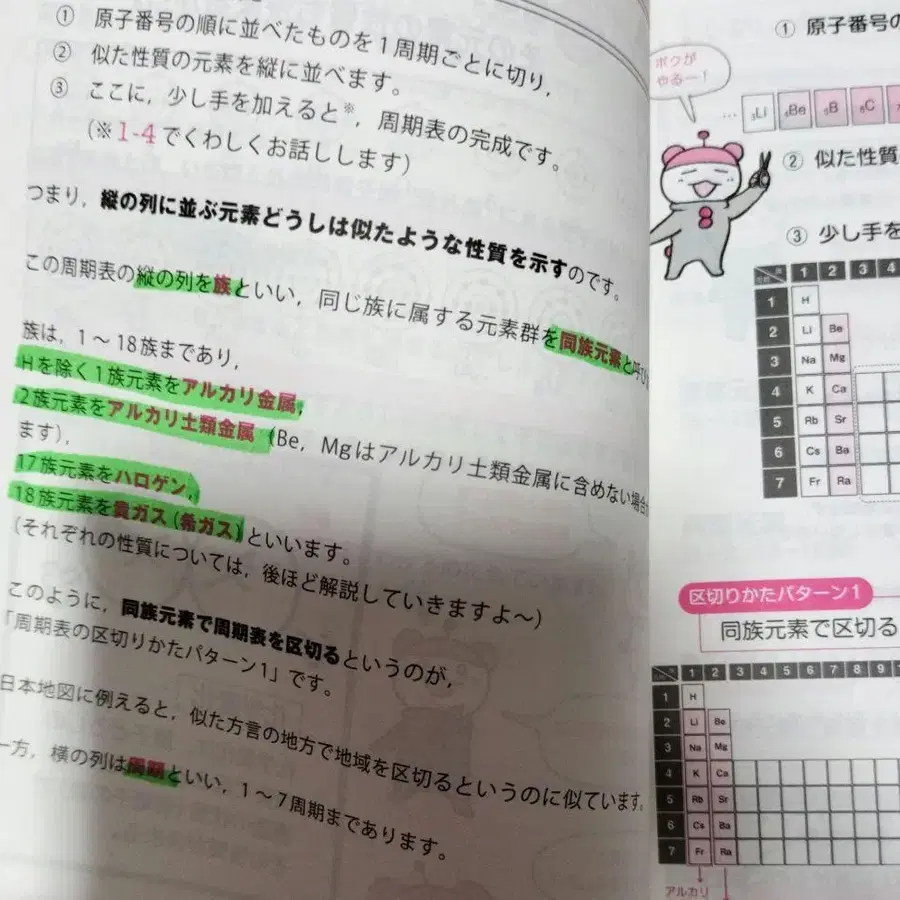 ① 原子番号の順に並べたものを1周期ごとに切り,
② 似た性質の元素を縦に並べます。
③ ここに,少し手を加えると※,周期表の完成です。
(※1-4でくわしくお話しします)
つまり,縦の列に並ぶ元素どうしは似たような性質を示すのです。
この周期表の縦の列を族といい,同じ族に属する元素群を同族元素と呼び
族は,1〜18族まであり,
Hを除く1族元素をアルカリ金属,
2族元素をアルカリ土類金属(Be,Mgはアルカリ土類金属に含めない場合
ます),
17族元素をハロゲン,
18族元素を貴ガス(希ガス)といいます。
(それぞれの性質については,後ほど解説していきますよ〜)
このように,同族元素で周期表を区切るというのが,
「周期表の区切りかたパターン1」です。
日本地図に例えると,似た方言の地方で地域を区切るというのに似ています。
一方,横の列は周期といい,1〜7周期まであります。
① 原子番号の
ボクが
やるー!
… ₃Li ₄Be ₅B ₆C
② 似た性質
③ 少し手を
1 2 3 4
1 H
2 Li Be
3 Na Mg
4 K Ca
5 Rb Sr
6 Cs Ba
7 Fr Ra
区切りかたパターン1
同族元素で区切る
1 2 3 4 5 6 7 8 9
1 H
2 Li Be
3 Na Mg
4 K Ca
5 Rb Sr
6 Cs Ba
7 Fr Ra
アルカリ